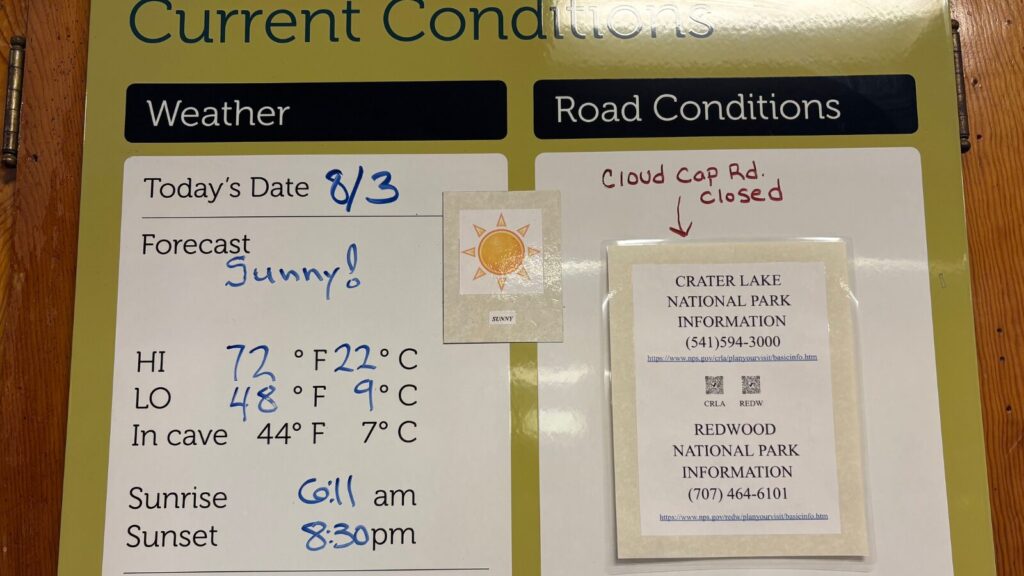 Current Conditions
Weather
Today's Date 8/3
Forecast
Sunny!
SUNNY
HI 72 °F 22°C
LO 48 °F 9°C
In cave 44°F 7°C
Sunrise 6:11 am
Sunset 8:30pm
Road Conditions
Cloud Cap Rd.
closed
CRATER LAKE
NATIONAL PARK
INFORMATION
(541)594-3000
https://www.nps.gov/crla/planyourvisit/basicinfo.htm
CRLA REDW
REDWOOD
NATIONAL PARK
INFORMATION
(707) 464-6101
https://www.nps.gov/redw/planyourvisit/basicinfo.htm